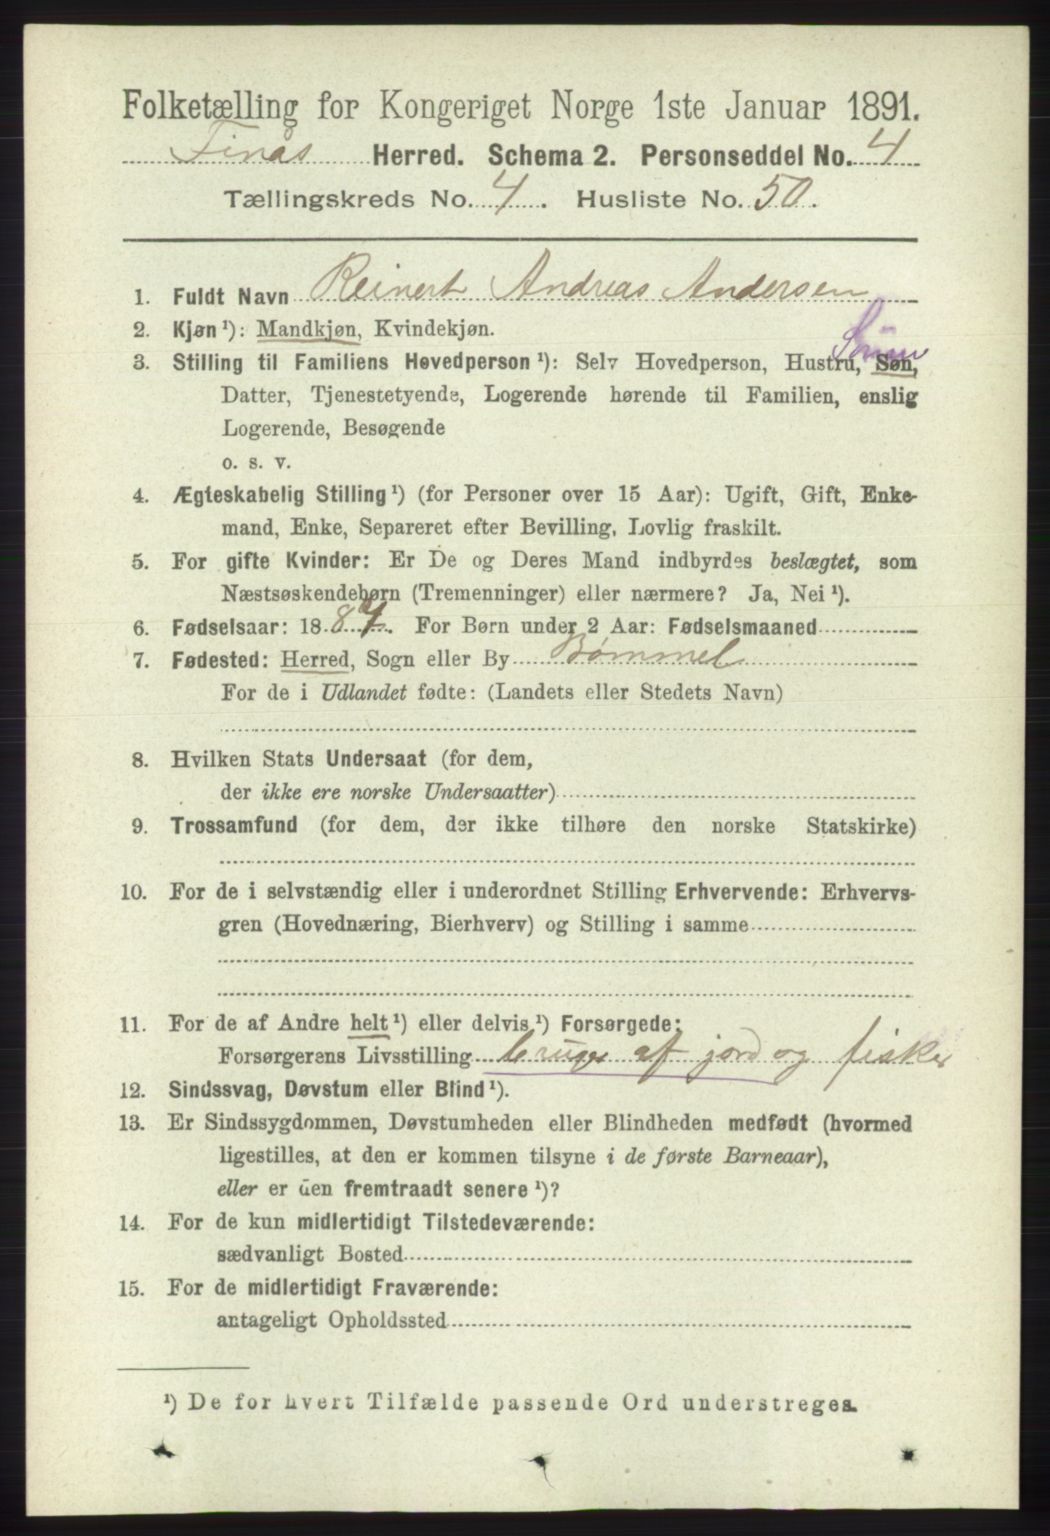 Folketælling for Kongeriget Norge 1ste Januar 1891.
Finås Herred. Schema 2. Personseddel No. 4
Tællingskreds No. 4. Husliste No. 50.
1. Fuldt Navn Reinert Andreas Andersen
2. Kjøn¹): Mandkjøn, Kvindekjøn.
3. Stilling til Familiens Hovedperson¹): Selv Hovedperson, Hustru, Søn,
Datter, Tjenestetyende, Logerende hørende til Familien, enslig
Logerende, Besøgende
o. s. v.
4. Ægteskabelig Stilling¹) (for Personer over 15 Aar): Ugift, Gift, Enke-
mand, Enke, Separeret efter Bevilling, Lovlig fraskilt.
5. For gifte Kvinder: Er De og Deres Mand indbyrdes beslægtet, som
Næstsøskendebørn (Tremenninger) eller nærmere? Ja, Nei¹).
6. Fødselsaar: 1887. For Børn under 2 Aar: Fødselsmaaned
7. Fødested: Herred, Sogn eller By Bømmel
For de i Udlandet fødte: (Landets eller Stedets Navn)
8. Hvilken Stats Undersaat (for dem,
der ikke ere norske Undersaatter)
9. Trossamfund (for dem, der ikke tilhøre den norske Statskirke)
10. For de i selvstændig eller i underordnet Stilling Erhvervende: Erhvervs-
gren (Hovednæring, Bierhverv) og Stilling i samme
11. For de af Andre helt¹) eller delvis¹) Forsørgede:
Forsørgerens Livsstilling bruger af jord og fisker
12. Sindssvag, Døvstum eller Blind¹).
13. Er Sindssygdommen, Døvstumheden eller Blindheden medfødt (hvormed
ligestilles, at den er kommen tilsyne i de første Barneaar),
eller er den fremtraadt senere¹)?
14. For de kun midlertidigt Tilstedeværende:
sædvanligt Bosted
15. For de midlertidigt Fraværende:
antageligt Opholdssted
¹) De for hvert Tilfælde passende Ord understreges.